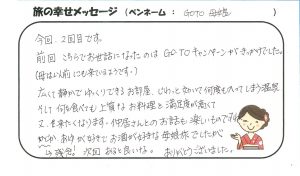 旅の幸せメッセージ（ペンネーム：GOTO 母娘）
今回、2回目です。
前回こちらでお世話になったのは GO TOキャンペーンがきっかけでした。
(母は以前にも来ているようです。)
広くて静かでゆっくりできるお部屋、じわっと効いて何度も入ってしまう温泉
そして何を食べても上質なお料理と満足度が高くて
又、来たくなります。仲居さんとのお話も楽しいものです
おゆが好きでお酒が好きな母娘旅でしたが
残念! 次回あると良いな。ありがとうございました。